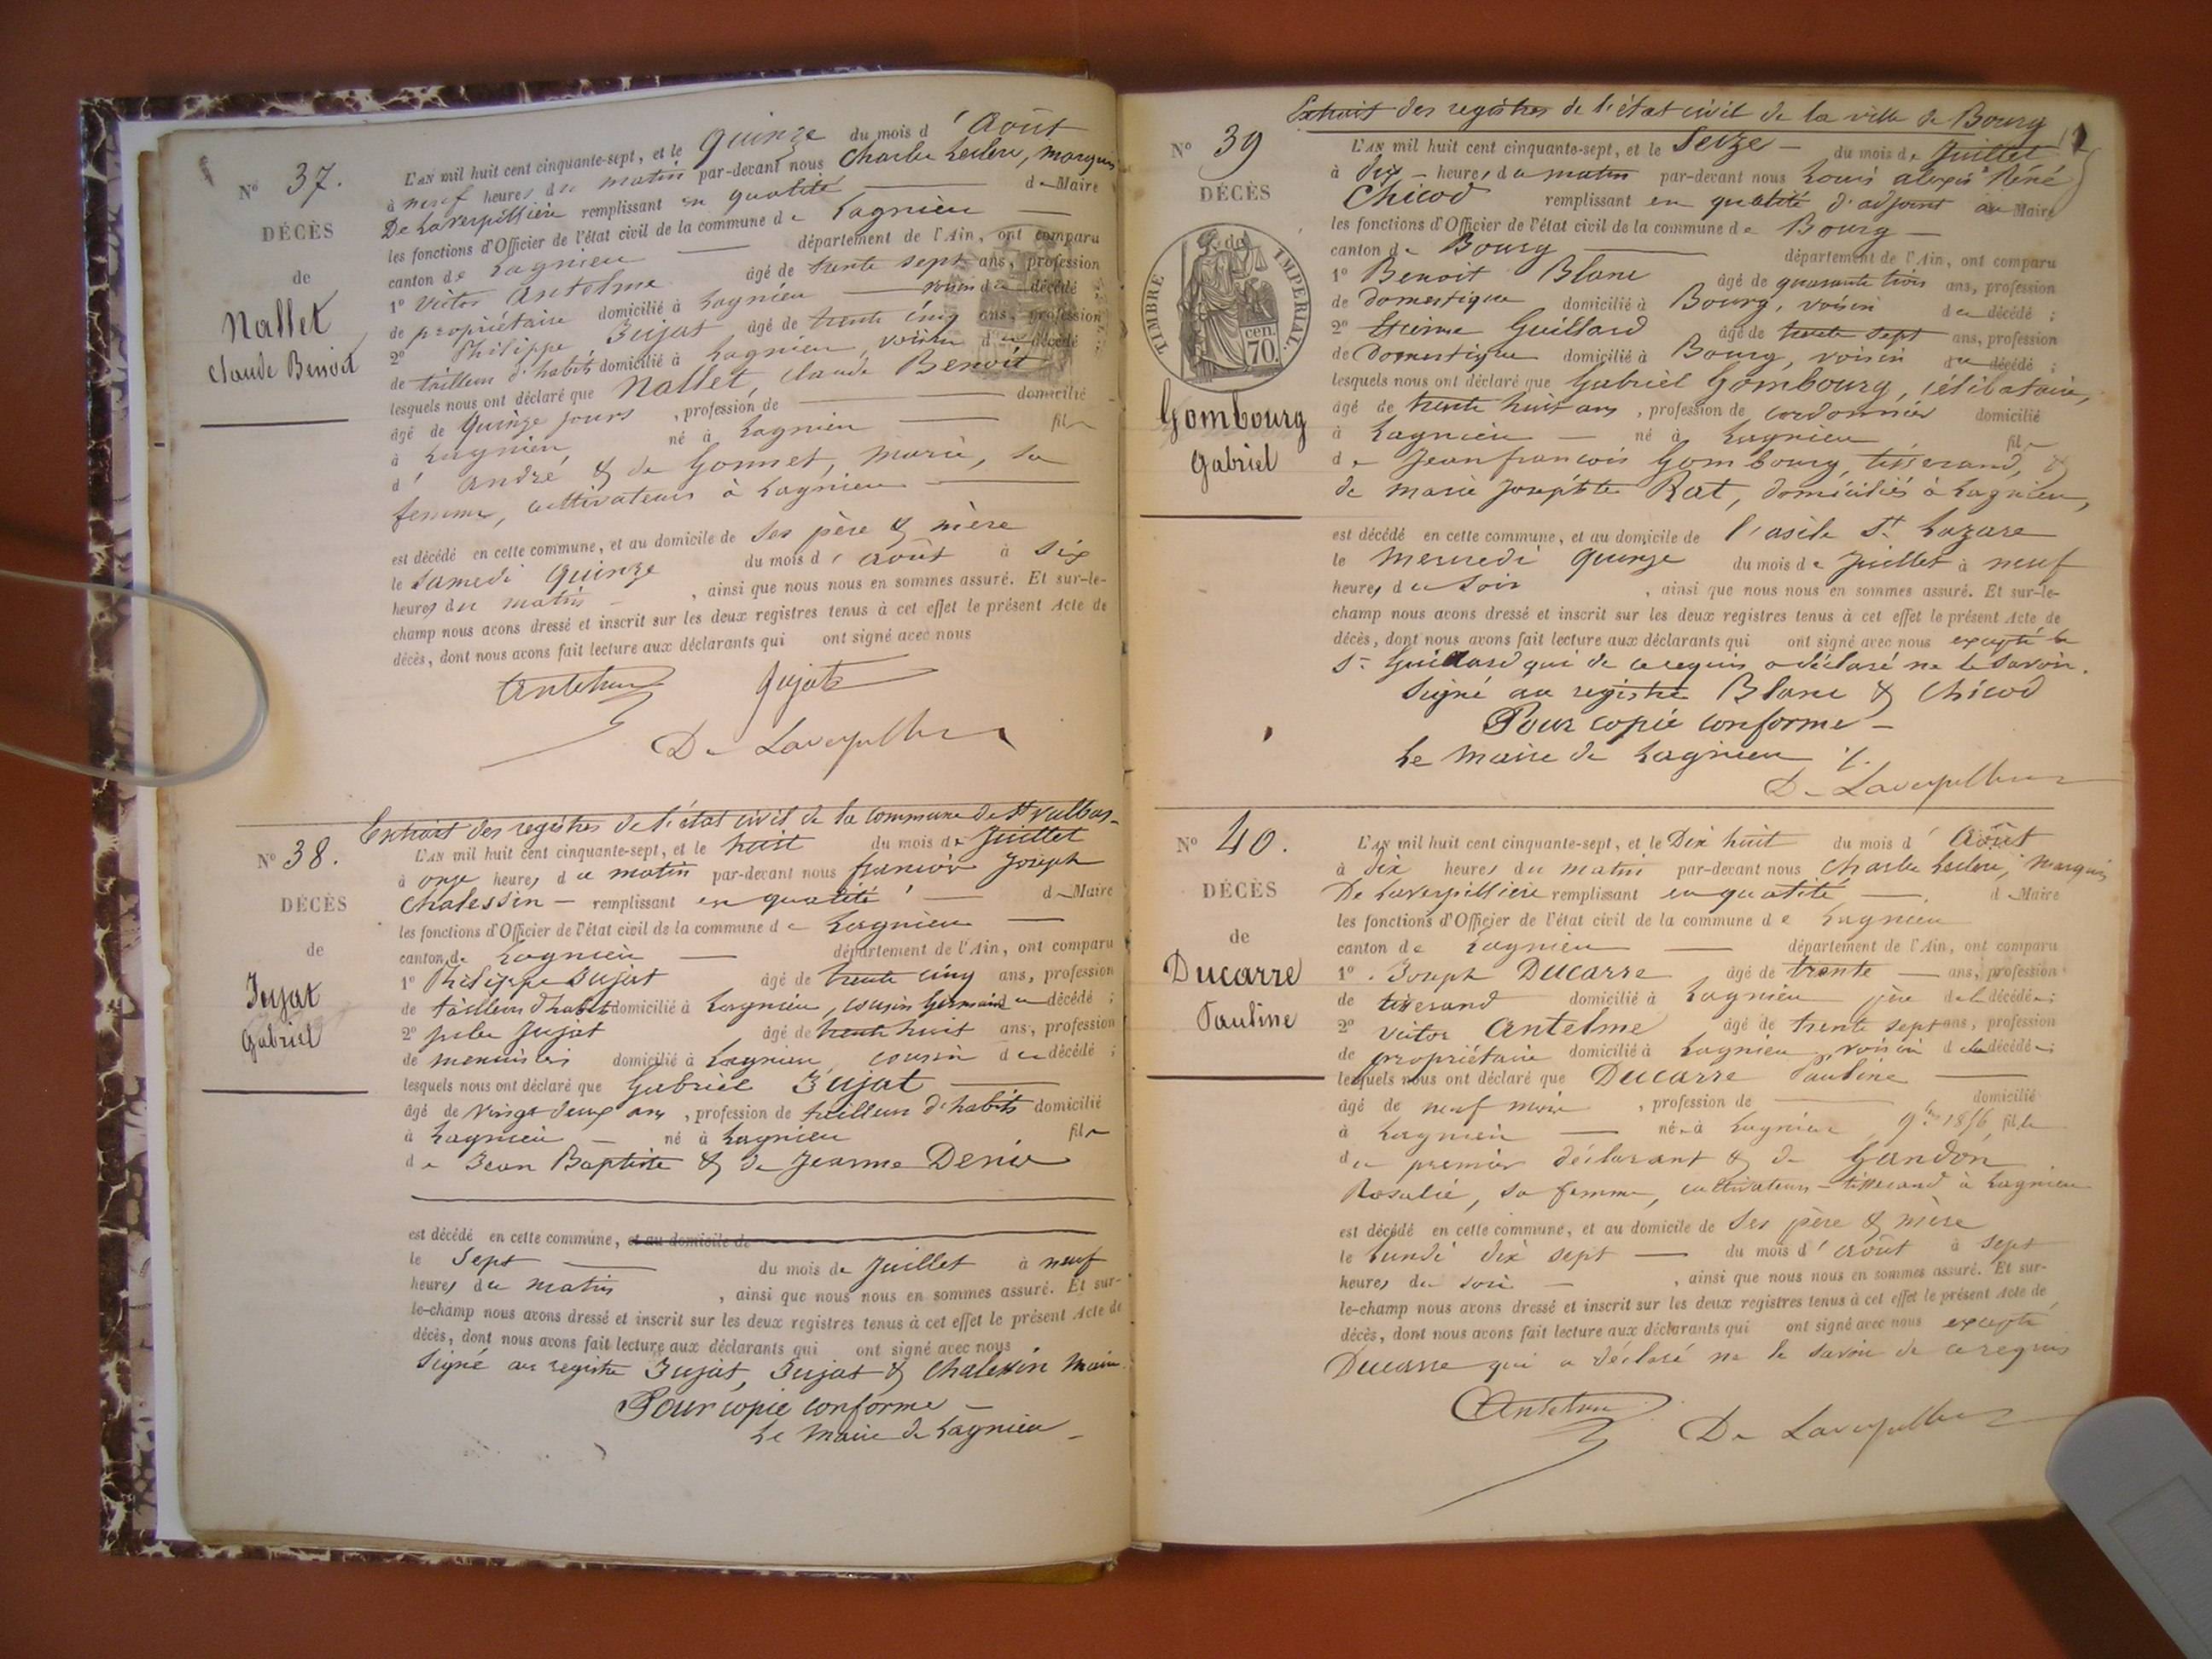 N° 37.
DÉCÈS
de
Nallet
Claude Benoit
L'AN mil huit cent cinquante-sept, et le quinze du mois d' Août
à neuf heures du matin par-devant nous Charles Leclerc, marquis
De Laverpillière remplissant en qualité de Maire
les fonctions d'Officier de l'état civil de la commune de Lagnieu
canton de Lagnieu département de l'Ain, ont comparu
1° Victor Antelme âgé de trente sept ans, profession
de propriétaire domicilié à Lagnieu voisin du décédé ;
2° Philippe Jujat âgé de trente cinq ans, profession
de tailleur d'habits domicilié à Lagnieu, voisin du décédé ;
lesquels nous ont déclaré que Nallet, Claude Benoit
âgé de quinze jours , profession de domicilié
à Lagnieu, né à Lagnieu fils
d' André & de Gonnet, Marie, sa
femme, cultivateurs à Lagnieu
est décédé en cette commune, et au domicile de ses père & mère
le samedi quinze du mois d' Août à six
heures du matin , ainsi que nous nous en sommes assuré. Et sur-le-
champ nous avons dressé et inscrit sur les deux registres tenus à cet effet le présent Acte de
décès, dont nous avons fait lecture aux déclarants qui ont signé avec nous
Antelme Jujat
De Laverpillière
Extrait des registres de l'état civil de la commune de St Vulbas
N° 38.
DÉCÈS
de
Jujat
Gabriel
L'AN mil huit cent cinquante-sept, et le huit du mois de Juillet
à onze heures du matin par-devant nous françois Joseph
Chalessin remplissant en qualité de Maire
les fonctions d'Officier de l'état civil de la commune de Lagnieu
canton de Lagnieu département de l'Ain, ont comparu
1° Philippe Jujat âgé de trente cinq ans, profession
de tailleur d'habits domicilié à Lagnieu, cousin germain du décédé ;
2° Jules Jujat âgé de trente huit ans, profession
de menuisier domicilié à Lagnieu, cousin du décédé ;
lesquels nous ont déclaré que Gabriel Jujat
âgé de vingt deux ans , profession de tailleur d'habits domicilié
à Lagnieu né à Lagnieu fils
de Jean Baptiste & de Jeanne Denis
est décédé en cette commune, et au domicile de
le sept du mois de Juillet à neuf
heures du matin , ainsi que nous nous en sommes assuré. Et sur-
le-champ nous avons dressé et inscrit sur les deux registres tenus à cet effet le présent Acte de
décès, dont nous avons fait lecture aux déclarants qui ont signé avec nous
Signé au registre Jujat, Jujat & Chalessin Maire.
Pour copie conforme
Le Maire de Lagnieu
Extrait des registres de l'état civil de la ville de Bourg
N° 39
DÉCÈS
de
TIMBRE IMPERIAL.
cen.
70.
Gombourg
Gabriel
L'AN mil huit cent cinquante-sept, et le Seize du mois de Juillet
à dix heures du matin par-devant nous Louis alexis Réné
Chicod remplissant en qualité d'adjoint au Maire
les fonctions d'Officier de l'état civil de la commune de Bourg
canton de Bourg département de l'Ain, ont comparu
1° Benoit Blanc âgé de quarante trois ans, profession
de domestique domicilié à Bourg, voisin du décédé ;
2° Etienne Guillard âgé de trente sept ans, profession
de domestique domicilié à Bourg, voisin du décédé ;
lesquels nous ont déclaré que Gabriel Gombourg, célibataire,
âgé de trente huit ans , profession de cordonnier domicilié
à Lagnieu né à Lagnieu fils
de Jean françois Gombourg, tisserand, &
de marie Josephte Rat, domiciliés à Lagnieu,
est décédé en cette commune, et au domicile de l'asile St Lazare
le mercredi quinze du mois de Juillet à neuf
heures du soir , ainsi que nous nous en sommes assuré. Et sur-le-
champ nous avons dressé et inscrit sur les deux registres tenus à cet effet le présent Acte de
décès, dont nous avons fait lecture aux déclarants qui ont signé avec nous excepté le
Sr Guillard qui de ce requis a déclaré ne le savoir.
Signé au registre Blanc & Chicod
Pour copie conforme
Le Maire de Lagnieu
De Laverpillière
N° 40.
DÉCÈS
de
Ducarre
Pauline
L'AN mil huit cent cinquante-sept, et le Dix huit du mois d' Août
à dix heures du matin par-devant nous Charles Leclerc, Marquis
De Laverpillière remplissant en qualité d Maire
les fonctions d'Officier de l'état civil de la commune de Lagnieu
canton de Lagnieu département de l'Ain, ont comparu
1° Joseph Ducarre âgé de trente ans, profession
de tisserand domicilié à Lagnieu père de la décédée ;
2° Victor Antelme âgé de trente sept ans, profession
de propriétaire domicilié à Lagnieu, voisin de la décédée ;
lesquels nous ont déclaré que Ducarre Pauline
âgé de neuf mois , profession de domicilié
à Lagnieu née à Lagnieu 9bre 1856, fille
du premier déclarant & de Gandon
Rosalie, sa femme, cultivateurs-tisserand à Lagnieu
est décédé en cette commune, et au domicile de ses père & mère
le lundi dix sept du mois d' Août à sept
heures du soir , ainsi que nous nous en sommes assuré. Et sur-
le-champ nous avons dressé et inscrit sur les deux registres tenus à cet effet le présent Acte de
décès, dont nous avons fait lecture aux déclarants qui ont signé avec nous excepté
Ducarre qui a déclaré ne le savoir de ce requis
Antelme De Laverpillière